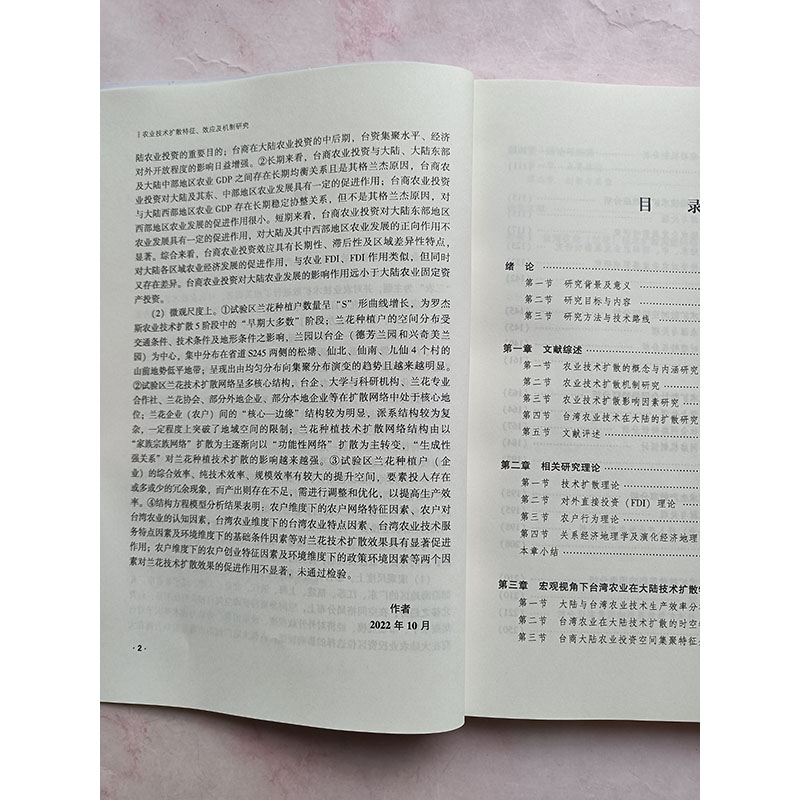 农业技术扩散特征、效应及机制研究
陆农业投资的重要目的；台商在大陆农业投资的中后期，台资集聚水平、经济
对外开放程度的影响日益增强。②长期来看，台商农业投资与大陆、大陆东部
及大陆中部地区农业 GDP 之间存在长期均衡关系且是其格兰杰原因，台商农业
投资对大陆及其东、中部地区农业发展具有一定的促进作用；台商农业投资
与大陆西部地区农业 GDP 存在长期稳定协整关系，但不是其格兰杰原因，对
西部地区农业发展的促进作用很小。短期来看，台商农业投资对大陆东部地区
农业发展具有一定的促进作用，对大陆及其中西部地区农业发展的正向作用不
显著。综合来看，台商农业投资效应具有长期性、滞后性及区域差异性特点，
对大陆各区域农业经济发展的促进作用，与农业 FDI、FDI 作用类似，但同时
又存在差异。台商农业投资对大陆农业发展的影响作用远小于大陆农业固定资
产投资。
（2）微观尺度上。①试验区兰花种植户数量呈“S”形曲线增长，为罗杰
斯农业技术扩散 5 阶段中的“早期大多数”阶段；兰花种植户的空间分布受
交通条件、技术条件及地形条件之影响，兰园以台企（德芳兰园和兴奇美兰
园）为中心，集中分布在省道 S245 两侧的松塘、仙北、仙南、九仙 4 个村的
山前地势低平地带；呈现出由均匀分布向集聚分布演变的趋势且越来越明显。
②试验区兰花技术扩散网络呈多核心结构，台企、大学与科研机构、兰花专业
合作社、兰花协会、部分外地企业、部分本地企业等在扩散网络中处于核心地
位；兰花企业（农户）间的“核心—边缘”结构较为明显，派系结构较为复
杂，一定程度上突破了地域空间的限制；兰花种植技术扩散网络结构由以
“家族宗族网络”扩散为主逐渐向以“功能性网络”扩散为主转变，“生成性
强关系”对兰花种植技术扩散的影响越来越强。③试验区兰花种植户（企
业）的综合效率、纯技术效率、规模效率有较大的提升空间，要素投入存在
或多或少的冗余现象，而产出则存在不足，需进行调整和优化，以提高生产效
率。④结构方程模型分析结果表明：农户维度下的农户网络特征因素、农户对
台湾农业的认知因素，台湾农业维度下的台湾农业特点因素、台湾农业技术服
务特点因素及环境维度下的基础条件因素等对兰花技术扩散效果具有显著促进
作用；农户维度下的农户创业特征因素及环境维度下的政策环境因素等两个因
素对兰花技术扩散效果的促进作用不显著，未通过检验。
作者
2022 年 10 月
· 2 ·
目 录
绪 论
第一节 研究背景及意义
第二节 研究目标与内容
第三节 研究方法与技术路线
第一章 文献综述
第一节 农业技术扩散的概念与内涵研究
第二节 农业技术扩散机制研究
第三节 农业技术扩散影响因素研究
第四节 台湾农业技术在大陆的扩散研究
第五节 文献评述
第二章 相关研究理论
第一节 技术扩散理论
第二节 对外直接投资（FDI）理论
第三节 农户行为理论
第四节 关系经济地理学及演化经济地理
本章小结
第三章 宏观视角下台湾农业在大陆技术扩散
第一节 大陆与台湾农业技术生产效率分
第二节 台湾农业在大陆技术扩散的时空
第三节 台商大陆农业投资空间集聚特征